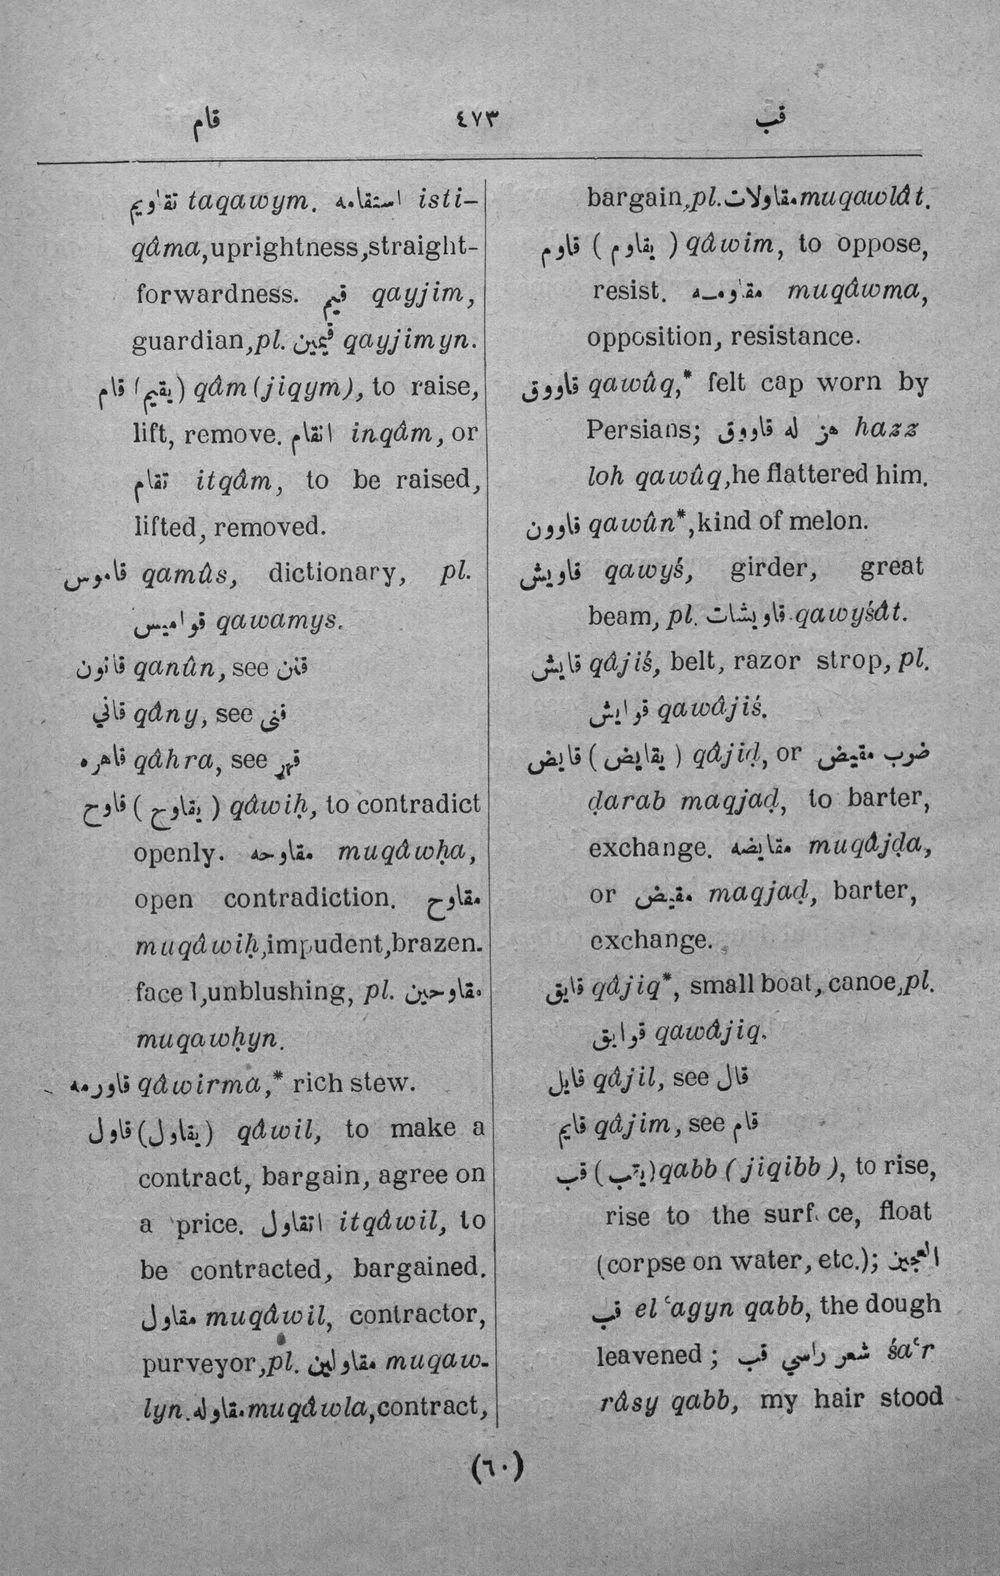 قام ٤٧٣ قب
تقاويم taqawym. استقامه isti-
qâma, uprightness, straight-
forwardness. قيم qayjim,
guardian, pl. قيمين qayjimyn.
قام (يقيم) qâm (jiqym), to raise,
lift, remove. انقام inqâm, or
تقام itqâm, to be raised,
lifted, removed.
قاموس qamûs, dictionary, pl.
قواميس qawamys.
قانون qanûn, see قنن
قاني qâny, see قنى
قاهره qâhra, see قهر
قاوح ( يقاوح ) qâwiḥ, to contradict
openly. مقاوحه muqâwḥa,
open contradiction. مقاوح
muqâwiḥ, impudent, brazen-
face l, unblushing, pl. مقاوحين
muqawḥyn.
قاورمه qâwirma,* rich stew.
قاول (يقاول) qâwil, to make a
contract, bargain, agree on
a price. اتقاول itqâwil, to
be contracted, bargained.
مقاول muqâwil, contractor,
purveyor, pl. مقاولين muqaw-
lyn. مقاوله muqâwla, contract,
bargain, pl. مقاولات muqawlât.
قاوم ( يقاوم ) qâwim, to oppose,
resist. مقاومه muqâwma,
opposition, resistance.
قاووق qawûq,* felt cap worn by
Persians; هز له قاووق hazz
loh qawûq, he flattered him.
قاوون qawûn*, kind of melon.
قاويش qawyś, girder, great
beam, pl. قاويشات qawyśât.
قايش qâjiś, belt, razor strop, pl.
قوايش qawâjiś.
قايض ( يقايض ) qâjiḍ, or ضرب مقيض
ḍarab maqjaḍ, to barter,
exchange. مقايضه muqâjḍa,
or مقيض maqjaḍ, barter,
exchange.
قايق qâjiq*, small boat, canoe, pl.
قوايق qawâjiq.
قايل qâjil, see قال
قايم qâjim, see قام
قب (يقب) qabb ( jiqibb ), to rise,
rise to the surf ce, float
(corpse on water, etc.); العجين
قب el ʿagyn qabb, the dough
leavened ; شعر راسي قب śaʿr
râsy qabb, my hair stood
(٦٠)